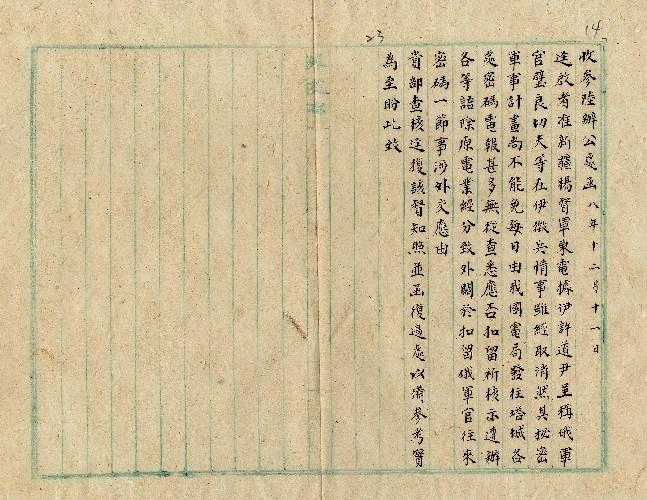 14
23
收參陸辦公處函 八年十二月十一日
逕啟者准新疆楊督軍東電據伊許道尹呈稱俄軍
官璧良切夫等在伊徵兵情事雖經取消然其秘密
軍事計畫尚不能免每日由我國電局發往塔城各
處密碼電報甚多無從查悉應否扣留祈核示遵辦
各等語除原電業經分致外關於扣留俄軍官往來
密碼一節事涉外交應由
貴部查核逕復該督知照並函復過處以備參考實
為至盼此致